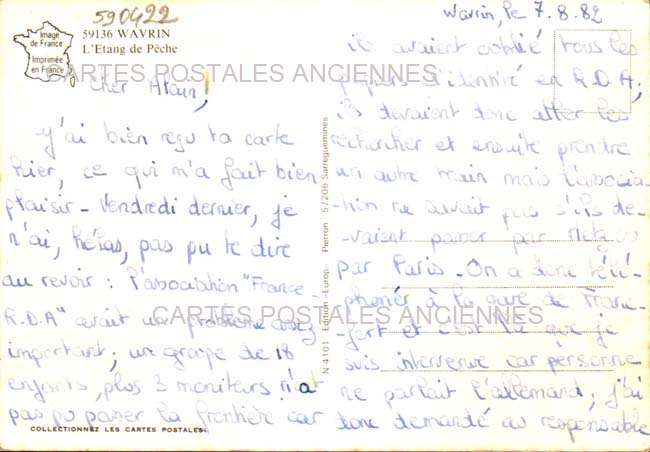 590422
Image
de France
Imprimée
en France
59136 WAVRIN
L'Etang de Pêche
CARTES POSTALES ANCIENNES
Cher Alain,
J'ai bien reçu ta carte
hier, ce qui m'a fait bien
plaisir - Vendredi dernier, je
n'ai, hélas, pas pu te dire
au revoir : l'association "France-
R.D.A" avait un problème assez
important; un groupe de 18
enfants, plus 3 moniteurs n'at
pas pu passer la frontière car
COLLECTIONNEZ LES CARTES POSTALES
N 4101 Edition -Europ- Pierron 57206 Sarreguemines
Wavrin, le 7.8.82
ils avaient oublié tous les
papiers d'identité en R.D.A;
ils devaient donc aller les
rechercher et ensuite prendre
un autre train mais l'associa-
-tion ne savait pas s'ils de-
-vaient passer par Metz ou
par Paris - On a donc télé-
phoner à la gare de Franc-
-fort et c'est là que je
suis intervenue car personne
ne parlait l'allemand; j'ai
donc demandé au responsable
CARTES POSTALES ANCIENNES